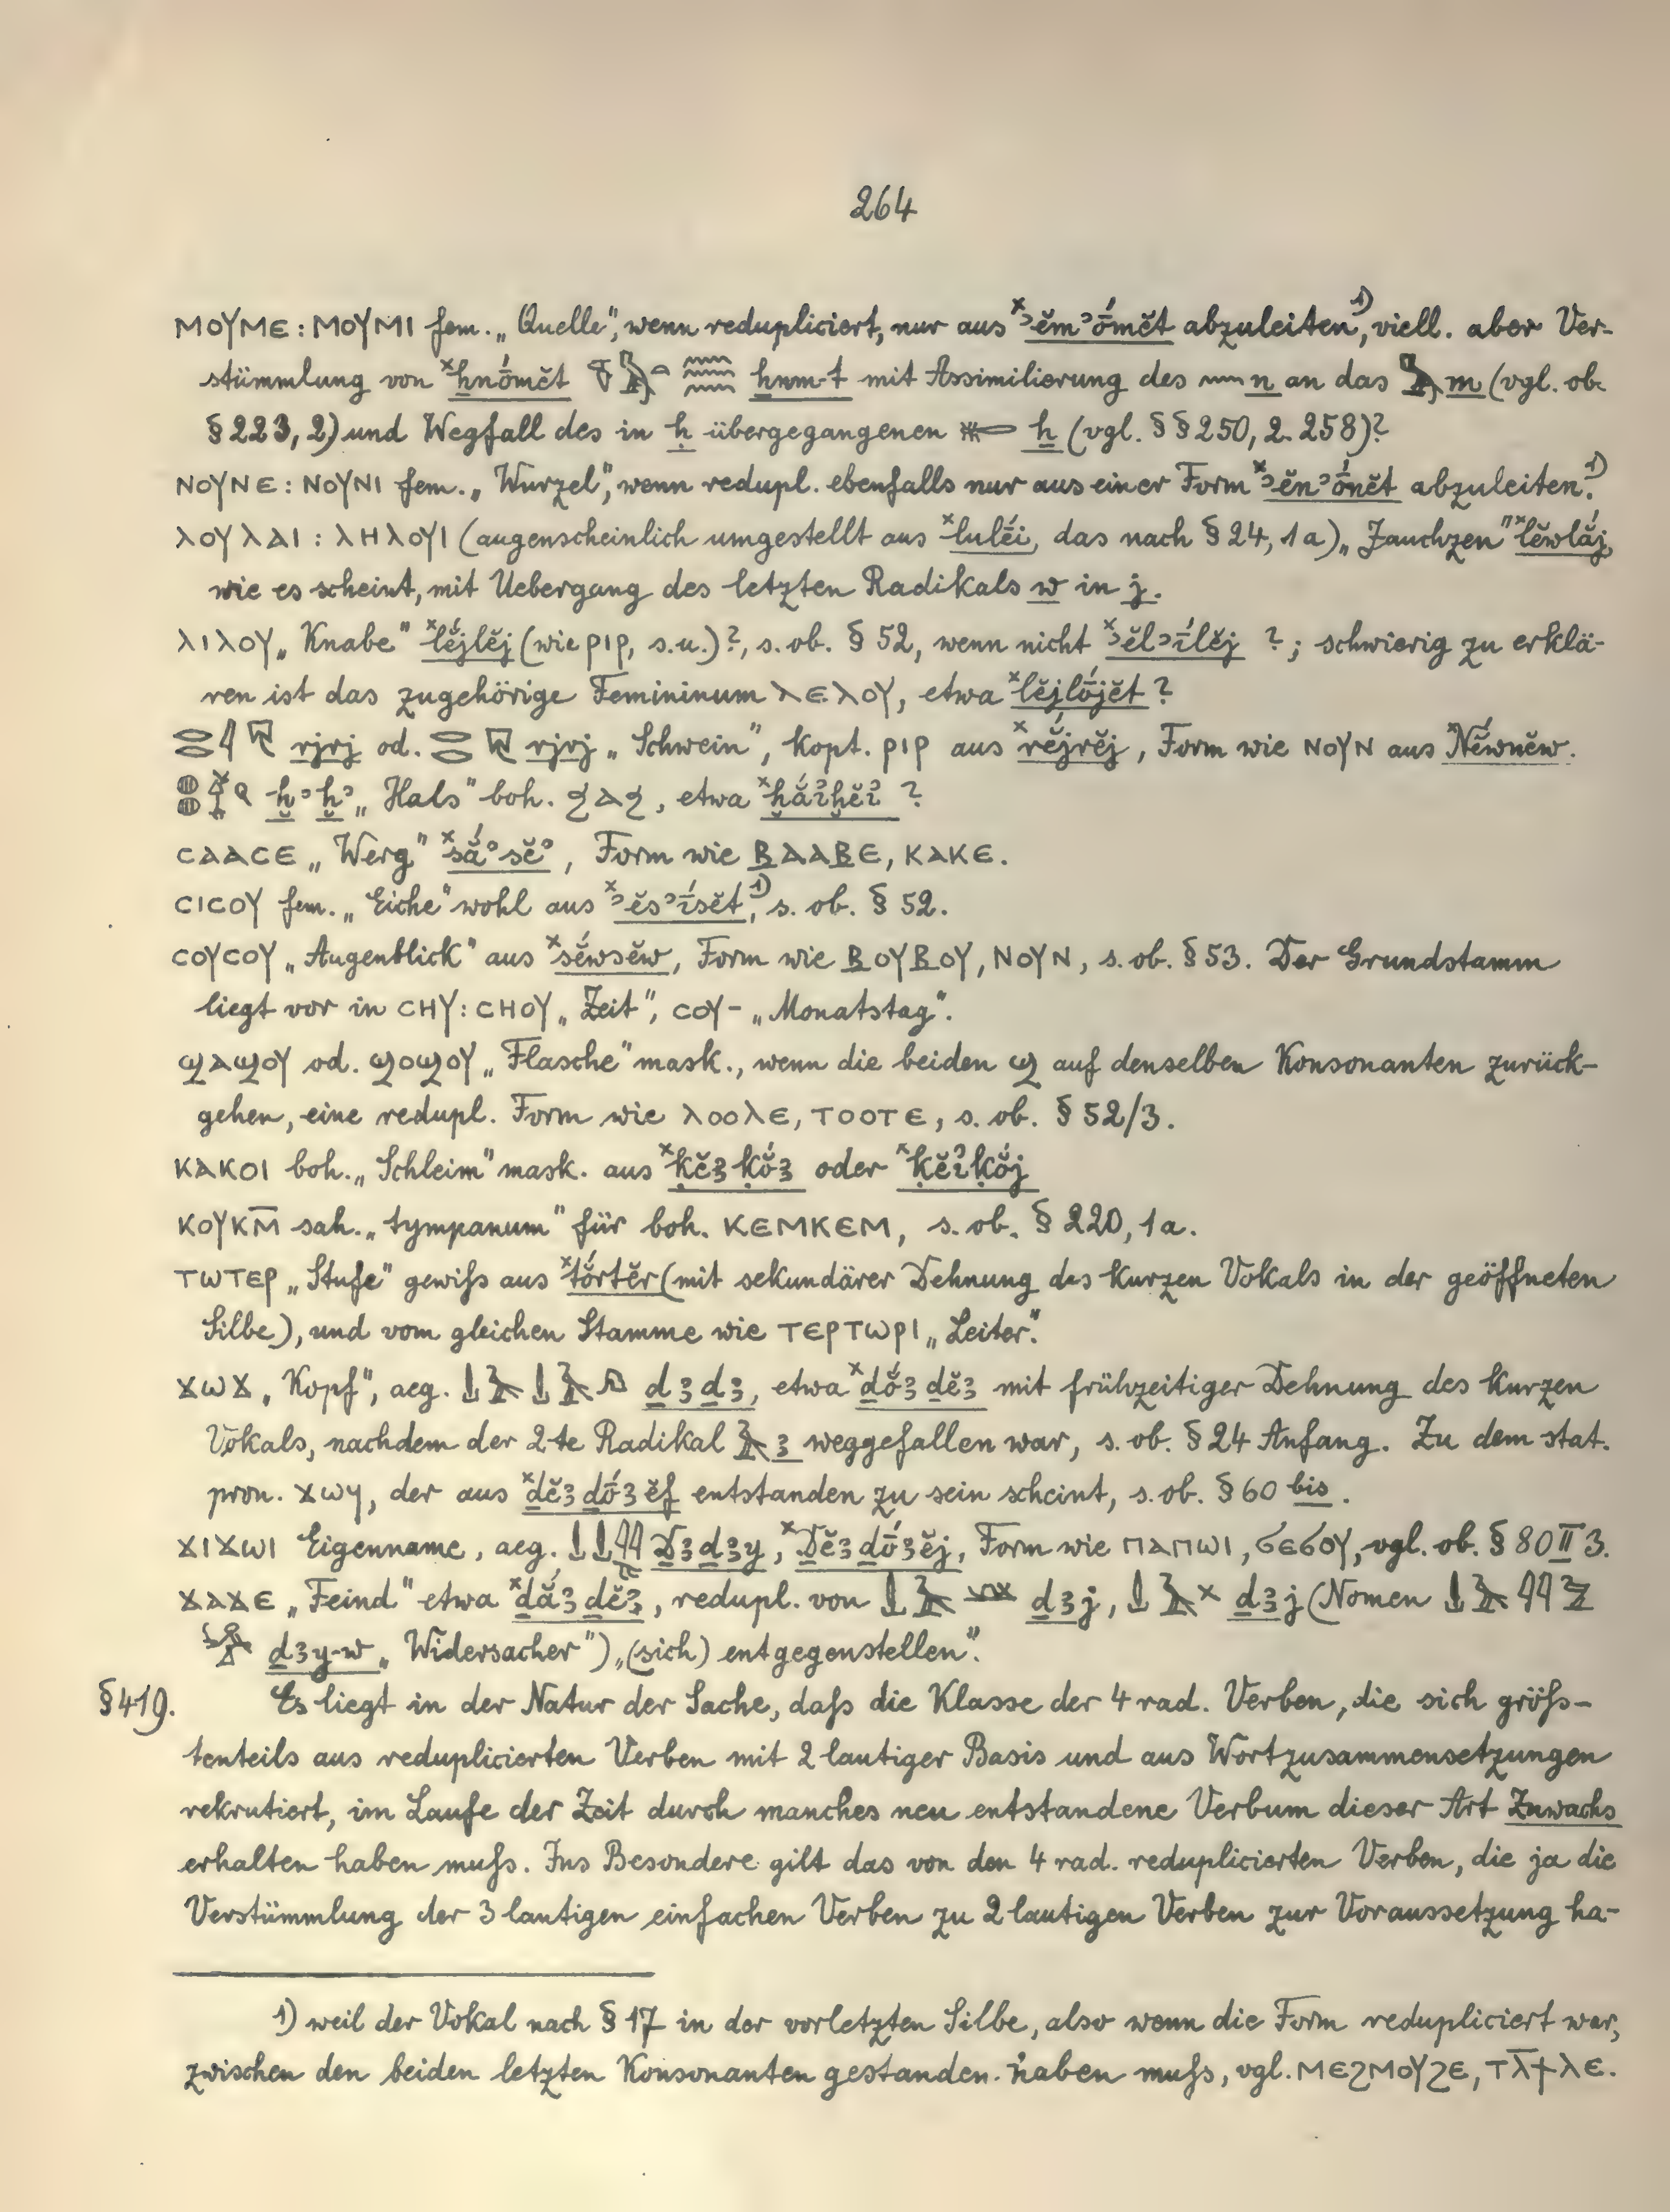 264
ⲙⲟⲩⲙⲉ : ⲙⲟⲩⲙⲓ fem. „Quelle“, wenn redupliciert, nur aus ˣʾĕmʾṓmĕt abzuleiten¹⁾, viell. aber Ver-
stümmlung von ˣẖnṓmĕt ẖnm-t mit Assimilierung des n an das m (vgl. ob.
§ 223, 2) und Wegfall des in ḥ übergegangenen ẖ (vgl. §§ 250, 2. 258)?
ⲛⲟⲩⲛⲉ : ⲛⲟⲩⲛⲓ fem. „Wurzel“, wenn redupl. ebenfalls nur aus einer Form ˣʾĕnʾṓnĕt abzuleiten.¹⁾
ⲗⲟⲩⲗⲁⲓ : ⲗⲏⲗⲟⲩⲓ (augenscheinlich umgestellt aus ˣluléi, das nach § 24, 1a) „Jauchzen“ ˣlĕwlắj,
wie es scheint, mit Uebergang des letzten Radikals w in j.
ⲗⲓⲗⲟⲩ „Knabe“ ˣlĕ́jlĕj (wie ⲣⲓⲣ, s.u.)?, s. ob. § 52, wenn nicht ˣʾĕlʾī́lĕj ?; schwierig zu erklä-
ren ist das zugehörige Femininum ⲗⲉⲗⲟⲩ, etwa ˣlĕjlṓjĕt ?
rjrj od. rjrj „Schwein“, kopt. ⲣⲓⲣ aus ˣrĕ́jrĕj, Form wie ⲛⲟⲩⲛ aus ˣNĕ́wnĕw.
ḫʾḫʾ „Hals“ boh. ϧⲁϧ, etwa ˣḫắʾḫĕʾ ?
ⲥⲁⲁⲥⲉ „Werg“ ˣsắʾsĕʾ, Form wie ⲃⲁⲁⲃⲉ, ⲕⲁⲕⲉ.
ⲥⲓⲥⲟⲩ fem. „Eiche“ wohl aus ˣʾĕsʾī́sĕt,¹⁾ s. ob. § 52.
ⲥⲟⲩⲥⲟⲩ „Augenblick“ aus ˣsĕ́wsĕw, Form wie ⲃⲟⲩⲃⲟⲩ, ⲛⲟⲩⲛ, s. ob. § 53. Der Grundstamm
liegt vor in ⲥⲏⲩ : ⲥⲏⲟⲩ „Zeit“, ⲥⲟⲩ- „Monatstag“.
ϣⲁϣⲟⲩ od. ϣⲟϣⲟⲩ „Flasche“ mask., wenn die beiden ϣ auf denselben Konsonanten zurück-
gehen, eine redupl. Form wie ⲗⲟⲟⲗⲉ, ⲧⲟⲟⲧⲉ, s. ob. § 52/3.
ⲕⲁⲕⲟⲓ boh. „Schleim“ mask. aus ˣḳĕꜣḳŏ́ꜣ oder ˣḳĕʾḳŏ́j
ⲕⲟⲩⲕⲙ̄ sah. „tympanum“ für boh. ⲕⲉⲙⲕⲉⲙ, s. ob. § 220, 1a.
ⲧⲱⲧⲉⲣ „Stufe“ gewiſs aus ˣtŏ́rtĕr (mit sekundärer Dehnung des kurzen Vokals in der geöffneten
Silbe), und vom gleichen Stamme wie ⲧⲉⲣⲧⲱⲣⲓ „Leiter“.
ϫⲱϫ „Kopf“, aeg. ḏꜣḏꜣ, etwa ˣḏŏ́ꜣḏĕꜣ mit frühzeitiger Dehnung des kurzen
Vokals, nachdem der 2-te Radikal ꜣ weggefallen war, s. ob. § 24 Anfang. Zu dem stat.
pron. ϫⲱϥ, der aus ˣḏĕꜣḏṓꜣĕf entstanden zu sein scheint, s. ob. § 60 bis.
ϫⲓϫⲱⲓ Eigenname, aeg. Ḏꜣḏꜣy, ˣḎĕꜣḏṓꜣĕj, Form wie ⲡⲁⲡⲱⲓ, ϭⲉϭⲟⲩ, vgl. ob. § 80 II 3.
ϫⲁϫⲉ „Feind“ etwa ˣḏắꜣḏĕꜣ, redupl. von ḏꜣj, ḏꜣj (Nomen
ḏꜣy-w „Widersacher“) „(sich) entgegenstellen“.
§ 419. Es liegt in der Natur der Sache, daſs die Klasse der 4 rad. Verben, die sich gröſs-
tenteils aus reduplicierten Verben mit 2 lautiger Basis und aus Wortzusammensetzungen
rekrutiert, im Laufe der Zeit durch manches neu entstandene Verbum dieser Art Zuwachs
erhalten haben muſs. Ins Besondere gilt das von den 4 rad. reduplicierten Verben, die ja die
Verstümmlung der 3 lautigen einfachen Verben zu 2 lautigen Verben zur Voraussetzung ha-
1) weil der Vokal nach § 17 in der vorletzten Silbe, also wenn die Form redupliciert war,
zwischen den beiden letzten Konsonanten gestanden haben muſs, vgl. ⲙⲉϩⲙⲟⲩϩⲉ, ⲧⲗ̄ϯⲗⲉ.